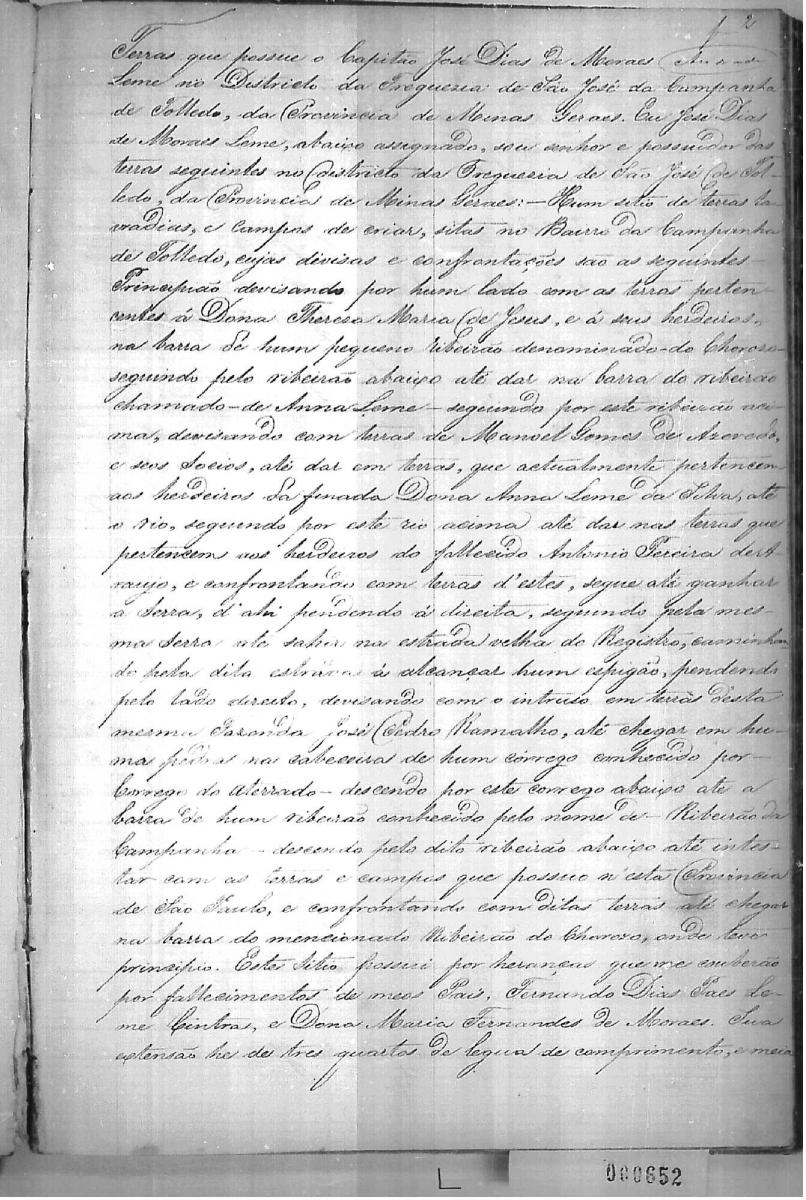 2
Terras que possue o Capitão José Dias de Moraes
Leme no Districto da Freguezia de São José da Campanha
de Tolledo, da Provincia de Minas Geraes. Eu José Dias
de Moraes Leme, abaixo assignado, sou senhor e possuidor das
terras seguintes no districto da Freguezia de São José de Tol-
ledo, da Provincia de Minas Geraes: — Hum sitio de terras la-
vradias, e Campos de criar, sitas no Bairro da Campanha
de Tolledo, cujas divisas e confrontações são as seguintes —
Principião devisando por hum lado com as terras perten-
centes á Dona Thereza Maria de Jesus, e á seus herdeiros,
na barra de hum pequeno ribeirão denominado - do Chorozo -
seguindo pelo ribeirão abaixo até dar na barra do ribeirão
chamado - de Anna Leme - seguindo por este ribeirão aci-
ma, devisando com terras de Manoel Gomes de Azevedo,
e seos Socios, até dar em terras, que actualmente pertencem
aos herdeiros da finada Dona Anna Leme da Silva, até
o rio, seguindo por este rio acima até dar nas terras que
pertencem aos herdeiros do fallecido Antonio Pereira de A-
raujo, e confrontando com terras d'estes, segue até ganhar
a Serra, d'ahi pendendo á direita, seguindo pela mes-
ma Serra até sahir na estrada velha do Registro, caminhan-
do pela dita estrada á alcançar hum espigão, pendendo
pelo lado direito, devisando com o intruso em terras desta
mesma Fazenda José Pedro Ramalho, até chegar em hu-
mas pedras na cabeceira de hum córrego conhecido por —
Corrego do Aterrado - descendo por este corrego abaixo até a
barra de hum ribeirão conhecido pelo nome de - Ribeirão da
Campanha - descendo pelo dito ribeirão abaixo até intes-
tar com as terras e campos que possuo n'esta Provincia
de São Paulo, e confrontando com ditas terras até chegar
na barra do mencionado Ribeirão do Chorozo, onde teve
principio. Este Sitio possui por heranças que me couberão
por fallecimentos de meos Pais, Fernando Dias Paes Le-
me Cintras, e Dona Maria Fernandes de Moraes. Sua
extensão he de tres quartos de legua de comprimento, e meia
L
000652